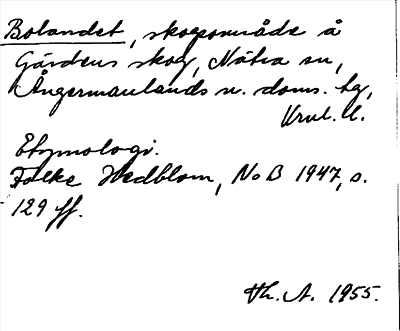 Bolandet, skogsområde å
Gärdens skog, Nätra sn,
Ångermanlands n. doms. hg,
Vnl. U.
Etymologi.
Folke Hedblom, NoB 1947, s.
129 ff.
Th. A. 1955.